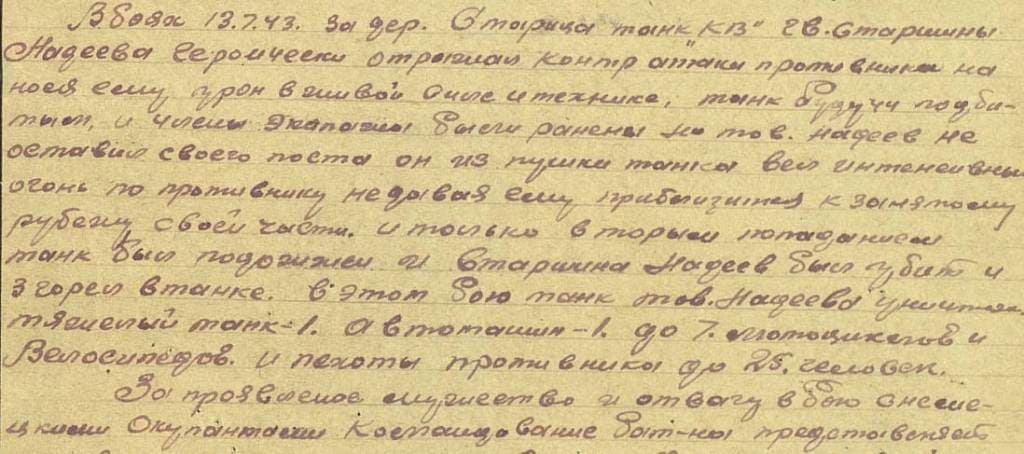 В боях 13.7.43. За дер. Старица танк "КВ" Гв. Старшины
Надеева героически отражал контр атаки противника на
нося ему урон в живой силе и технике, танк будучи подби-
тым, и члены экипажа были ранены но тов. Надеев не
оставил своего поста он из пушки танка вел интенсивный
огонь по противнику не давая ему приблизится к занятому
рубежу своей части. и только вторым попаданием
танк был подожжен и Старшина Надеев был убит и
згорел в танке. в этом бою танк тов. Надеева уничтож.
тяжелый танк-1. Автомашин-1. до 7. мотоциклов и
Велосипедов. и пехоты противника до 25. человек.
За проявленое мужество и отвагу в бою с неме-
цкими Окупантами Командование бат-на представляет